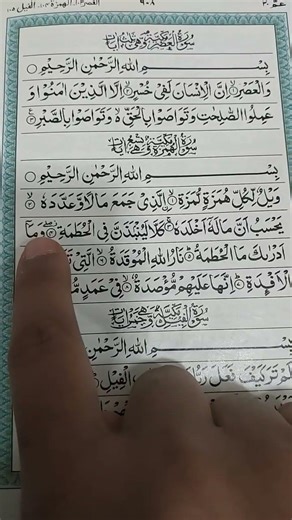 عمّ ٣٠ ٦٠٨ العصر ١٠٣ الهمزة ١٠٤ الفيل ١٠٥
سُورَةُ الْعَصْرِ مَكِّيَّةٌ وَهِيَ ثَلٰثُ اٰيَاتٍ
بِسْمِ اللهِ الرَّحْمٰنِ الرَّحِيْمِ
وَالْعَصْرِ ۙ اِنَّ الْاِنْسَانَ لَفِيْ خُسْرٍ ۙ اِلَّا الَّذِيْنَ اٰمَنُوْا وَ
عَمِلُوا الصّٰلِحٰتِ وَتَوَاصَوْا بِالْحَقِّ ۙ وَتَوَاصَوْا بِالصَّبْرِ
سُورَةُ الْهُمَزَةِ مَكِّيَّةٌ وَهِيَ تِسْعُ اٰيَاتٍ
بِسْمِ اللهِ الرَّحْمٰنِ الرَّحِيْمِ
وَيْلٌ لِّكُلِّ هُمَزَةٍ لُّمَزَةٍ ۙ الَّذِيْ جَمَعَ مَالًا وَّعَدَّدَهٗ ۙ
يَحْسَبُ اَنَّ مَالَهٗٓ اَخْلَدَهٗ ۚ كَلَّا لَيُنْۢبَذَنَّ فِي الْحُطَمَةِ ۖ وَمَآ
اَدْرٰىكَ مَا الْحُطَمَةُ ۗ نَارُ اللهِ الْمُوْقَدَةُ ۙ الَّتِيْ
الْاَفْـِٕدَةِ ۗ اِنَّهَا عَلَيْهِمْ مُّؤْصَدَةٌ ۙ فِيْ عَمَدٍ
سُورَةُ الْفِيْلِ مَكِّيَّةٌ وَهِيَ خَمْسُ اٰيَاتٍ
بِسْمِ اللهِ الرَّحْمٰنِ
اَلَمْ تَرَ كَيْفَ فَعَلَ رَبُّكَ الْفِيْلِ